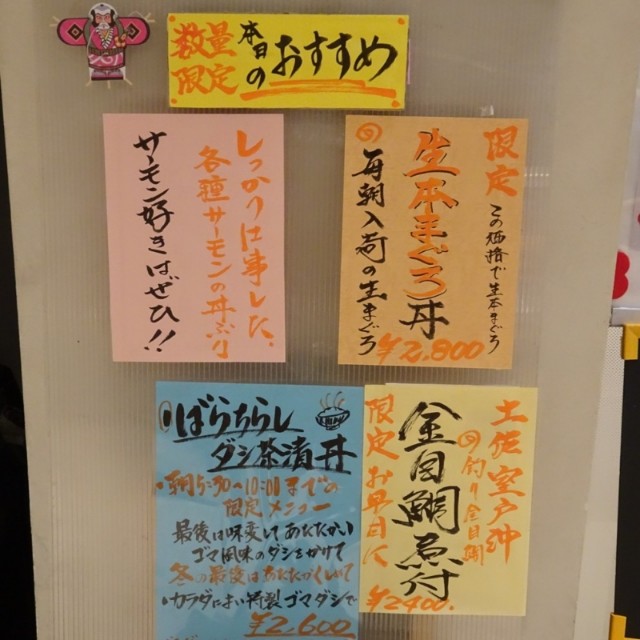 数量
限定
本日の
おすすめ
限定
この価格で生本まぐろ
生本まぐろ丼
毎朝入荷の生まぐろ
¥2,800
しっかり仕事した、
各種サーモンの丼あり
サーモン好きはぜひ!!
土佐室戸沖
釣り金目鯛
金目鯛煮付
限定お早目に
¥2400.
ばらちらし
ダシ茶漬丼
朝5:30~10:00までの
限定メニュー
最後は味変してあたたかい
ゴマ風味のダシをかけて
冬の最後はあたたかくして
カラダに良い特製ゴマダシで
¥2,600